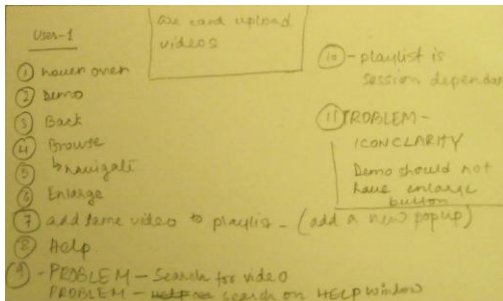 User-1
① hover over
② Demo
③ Back
④ Browse
⑤ ↳ navigate
⑥ Enlarge
⑦ add same video to playlist - (add a new popup)
⑧ Help
⑨ - PROBLEM - Search for video
PROBLEM - search on HELP window
we cand upload
videos
⑩ - playlist is
session dependant
⑪ PROBLEM -
ICON CLARITY
Demo should not
have enlarge
button